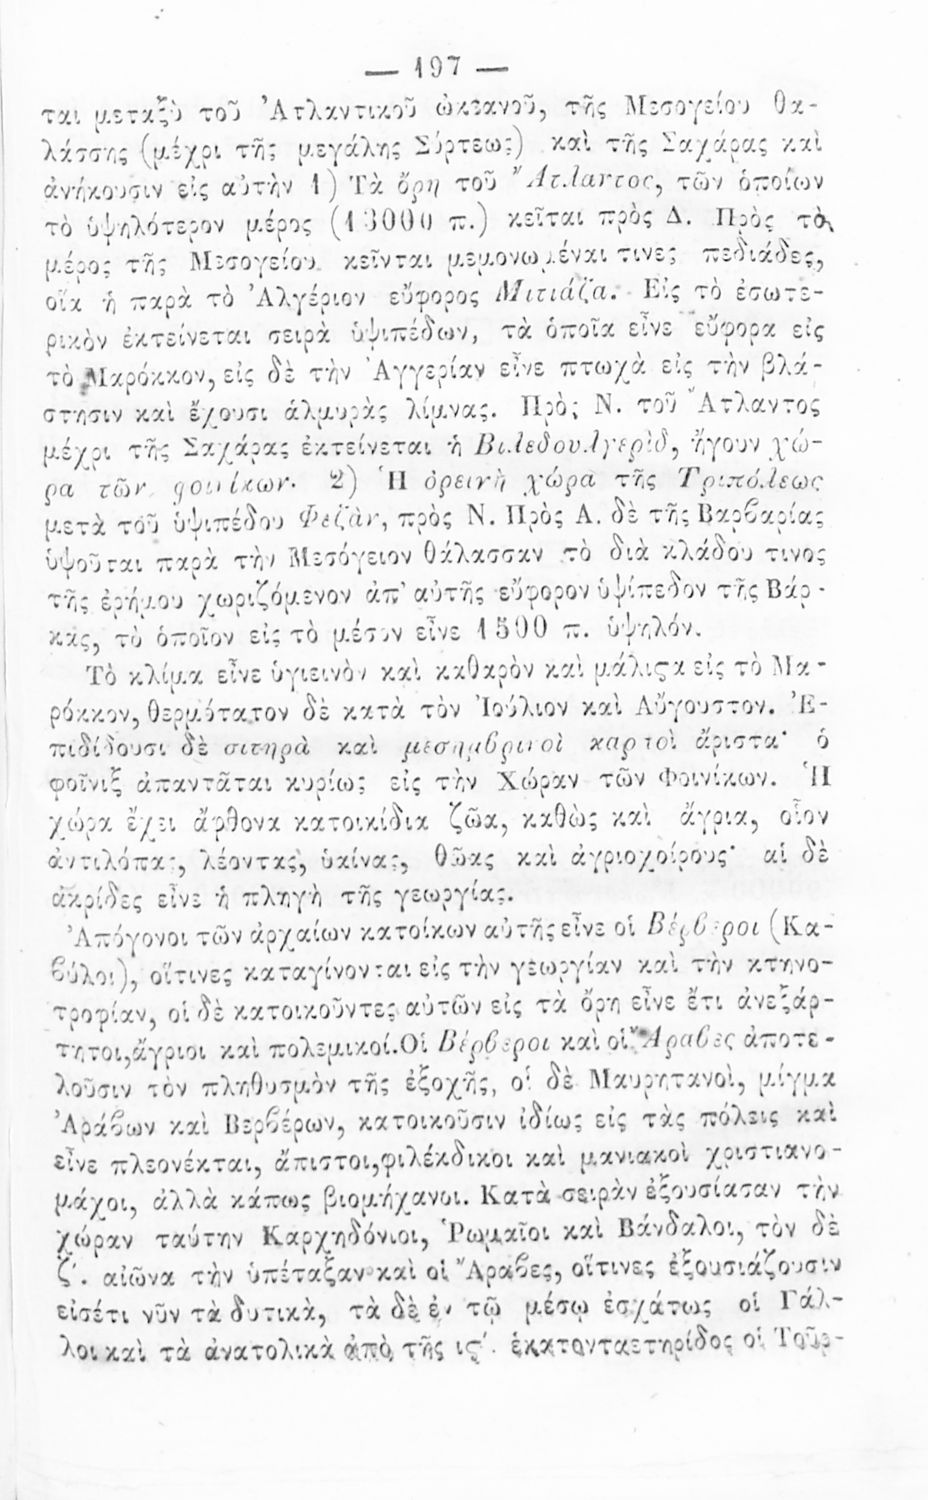 — 197 —
ται μεταξὺ τοῦ Ἀτλαντικοῦ ὠκεανοῦ, τῆς Μεσογείου θα-
λάσσης (μέχρι τῆς μεγάλης Σύρτεως) καὶ τῆς Σαχάρας καὶ
ἀνήκουσιν εἰς αὐτὴν 1) Τὰ ὄρη τοῦ Ἄτλαντος, τῶν ὁποίων
τὸ ὑψηλότερον μέρος (13000 π.) κεῖται πρὸς Δ. Πρὸς τὸ
μέρος τῆς Μεσογείου κεῖνται μεμονωμέναι τινες πεδιάδες,
οἵα ἡ παρὰ τὸ Ἀλγέριον εὔφορος Μιτιάζα. Εἰς τὸ ἐσωτε-
ρικὸν ἐκτείνεται σειρὰ ὑψιπέδων, τὰ ὁποῖα εἶνε εὔφορα εἰς
τὸ Μαρόκκον, εἰς δὲ τὴν Ἀγγερίαν εἶνε πτωχὰ εἰς τὴν βλά-
στησιν καὶ ἔχουσι ἁλμυρὰς λίμνας. Πρὸς Ν. τοῦ Ἄτλαντος
μέχρι τῆς Σαχάρας ἐκτείνεται ἡ Βιλεδουλγερὶδ, ἤγουν χώ-
ρα τῶν φοινίκων· 2) Ἡ ὀρεινὴ χώρα τῆς Τριπόλεως
μετὰ τοῦ ὑψιπέδου Φεζὰν, πρὸς Ν. Πρὸς Α. δὲ τῆς Βαρβαρίας
ὑψοῦται παρὰ τὴν Μεσόγειον θάλασσαν τὸ διὰ κλάδου τινος
τῆς ἐρήμου χωριζόμενον ἀπ' αὐτῆς εὔφορον ὑψίπεδον τῆς Βάρ-
κας, τὸ ὁποῖον εἰς τὸ μέσον εἶνε 1500 π. ὑψηλόν.
Τὸ κλίμα εἶνε ὑγιεινὸν καὶ καθαρὸν καὶ μάλιϛα εἰς τὸ Μα-
ρόκκον, θερμότατον δὲ κατὰ τὸν Ἰούλιον καὶ Αὔγουστον. Ἐ-
πιδίδουσι δὲ σιτηρὰ καὶ μεσημβρινοὶ καρποὶ ἄριστα· ὁ
φοῖνιξ ἀπαντᾶται κυρίως εἰς τὴν Χώραν τῶν Φοινίκων. Ἡ
χώρα ἔχει ἄφθονα κατοικίδια ζῶα, καθὼς καὶ ἄγρια, οἷον
ἀντιλόπας, λέοντας, ὑαίνας, θῶας καὶ ἀγριοχοίρους· αἱ δὲ
ἀκρίδες εἶνε ἡ πληγὴ τῆς γεωργίας.
Ἀπόγονοι τῶν ἀρχαίων κατοίκων αὐτῆς εἶνε οἱ Βέρβεροι (Κα-
βύλοι), οἵτινες καταγίνονται εἰς τὴν γεωργίαν καὶ τὴν κτηνο-
τροφίαν, οἱ δὲ κατοικοῦντες αὐτῶν εἰς τὰ ὄρη εἶνε ἔτι ἀνεξάρ-
τητοι, ἄγριοι καὶ πολεμικοί. Οἱ Βέρβεροι καὶ οἱ Ἄραβες ἀποτε-
λοῦσιν τὸν πληθυσμὸν τῆς ἐξοχῆς, οἱ δὲ Μαυρητανοὶ, μίγμα
Ἀράβων καὶ Βερβέρων, κατοικοῦσιν ἰδίως εἰς τὰς πόλεις καὶ
εἶνε πλεονέκται, ἄπιστοι, φιλέκδικοι καὶ μανιακοὶ χριστιανο-
μάχοι, ἀλλὰ κάπως βιομήχανοι. Κατὰ σειρὰν ἐξουσίασαν τὴν
χώραν ταύτην Καρχηδόνιοι, Ῥωμαῖοι καὶ Βάνδαλοι, τὸν δὲ
ζ'. αἰῶνα τὴν ὑπέταξαν καὶ οἱ Ἄραβες, οἵτινες ἐξουσιάζουσιν
εἰσέτι νῦν τὰ δυτικὰ, τὰ δὲ ἐν τῷ μέσῳ ἐσχάτως οἱ Γάλ-
λοι καὶ τὰ ἀνατολικὰ ἀπὸ τῆς ιϛ'. ἑκατονταετηρίδος οἱ Τοῦρ-